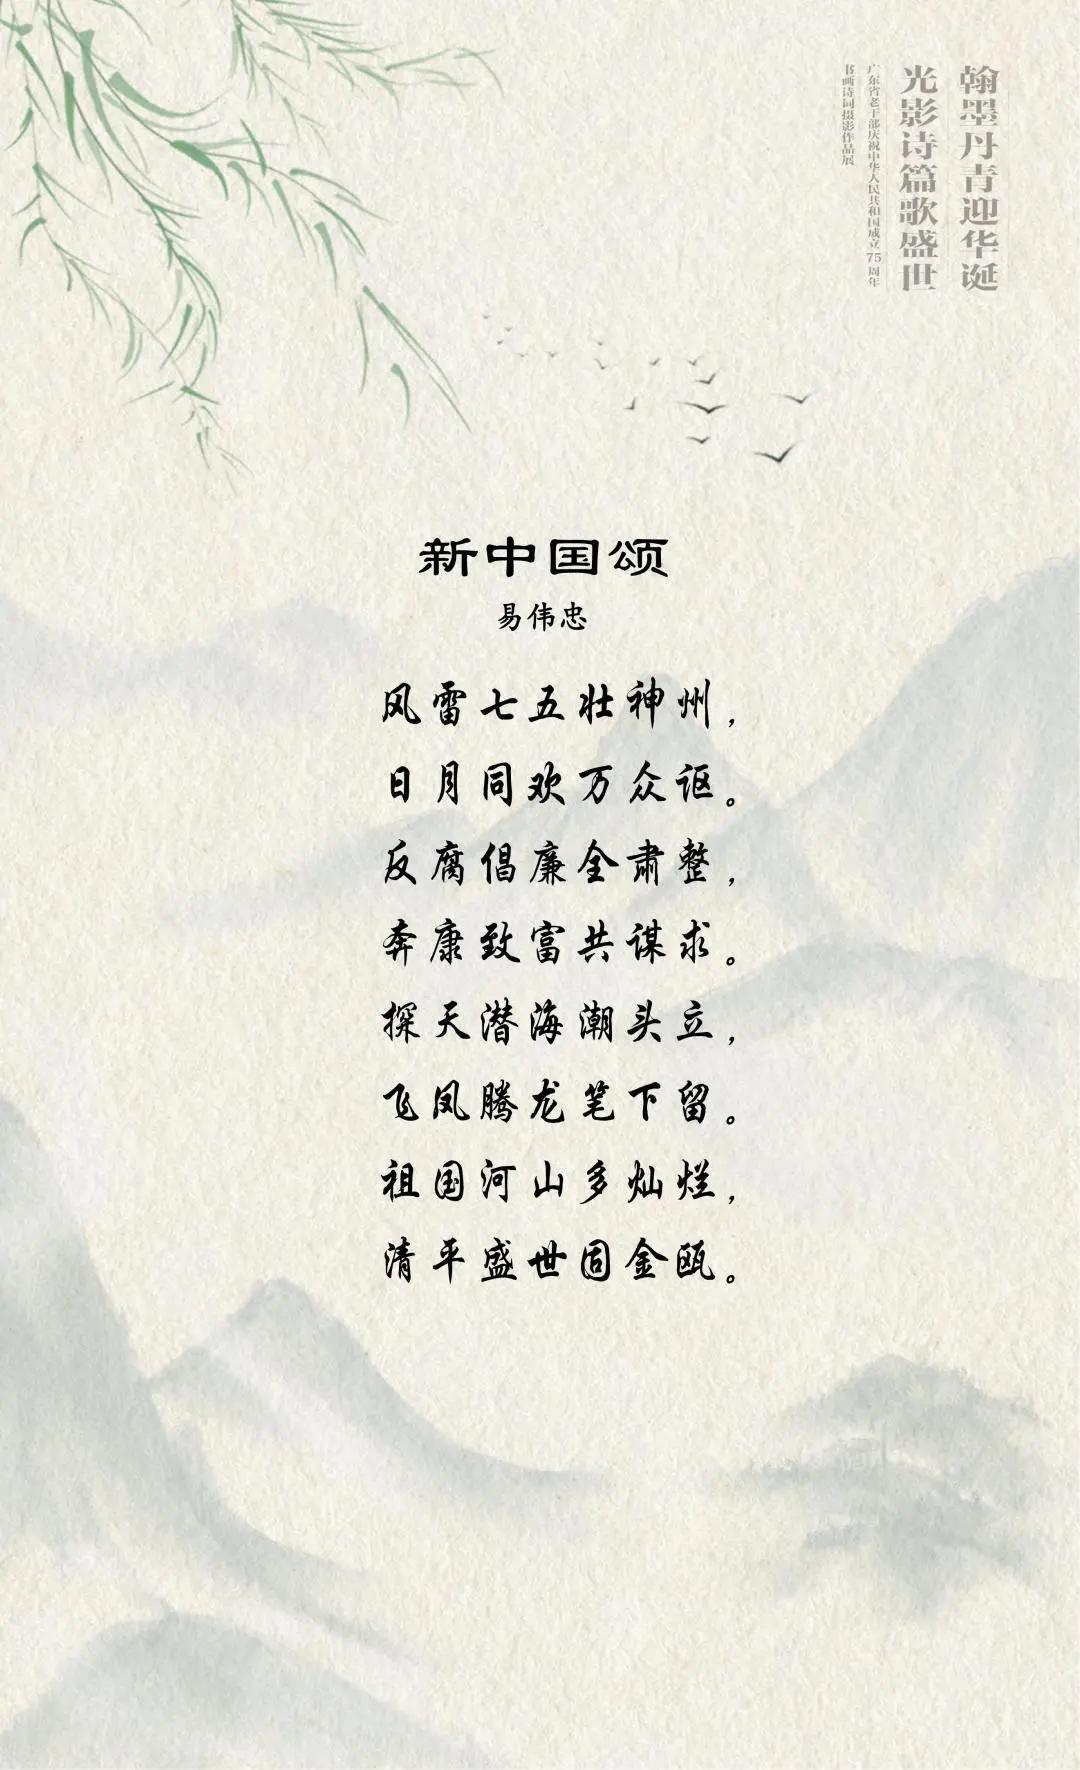 翰墨丹青迎华诞
光影诗篇歌盛世
广东省老干部庆祝中华人民共和国成立75周年
书画诗词摄影作品展
新中国颂
易伟忠
风雷七五壮神州，
日月同欢万众讴。
反腐倡廉全肃整，
奔康致富共谋求。
探天潜海潮头立，
飞凤腾龙笔下留。
祖国河山多灿烂，
清平盛世固金瓯。